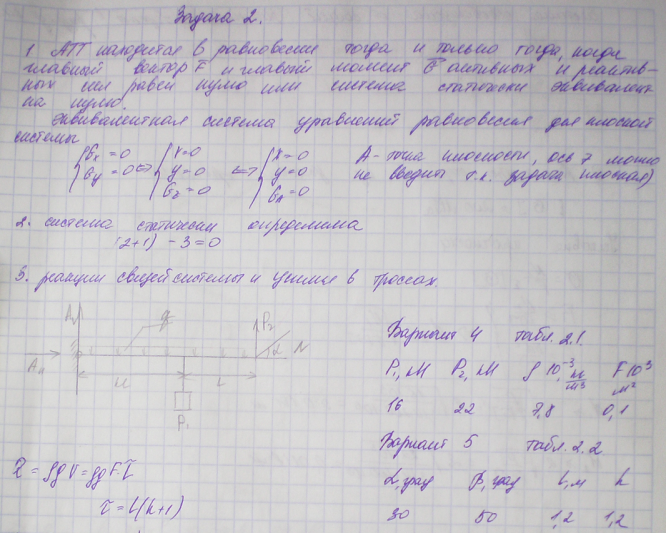 Задача 2.
1 АТТ находится в равновесие тогда и только тогда, когда
главный вектор F и главный момент G активных и реактив-
ных сил равен нулю или система статически эквивалент-
на нулю.
Эквивалентная система уравнений равновесия для плоской
системы
Gx = 0 ⇔ x=0 ⇔ x=0 A - точка плоскости, ось z можно
Gy = 0 y=0 y=0 не вводить т.к. задача плоская)
Gz = 0 GA = 0
2. система статически определима
(2+1) - 3 = 0
3. реакции связей системы и усилие в тросах.
q P2
α N
P1
Вариант 4 табл. 2.1.
P1, кН P2, кН ρ 10⁻³ кг/м³ F 10³ м²
16 22 7,8 0,1
Вариант 5 табл. 2.2
α, град β, град L, м k
30 50 1,2 1,2
Q = ρgV = ρgF·l
l = L(k+1)